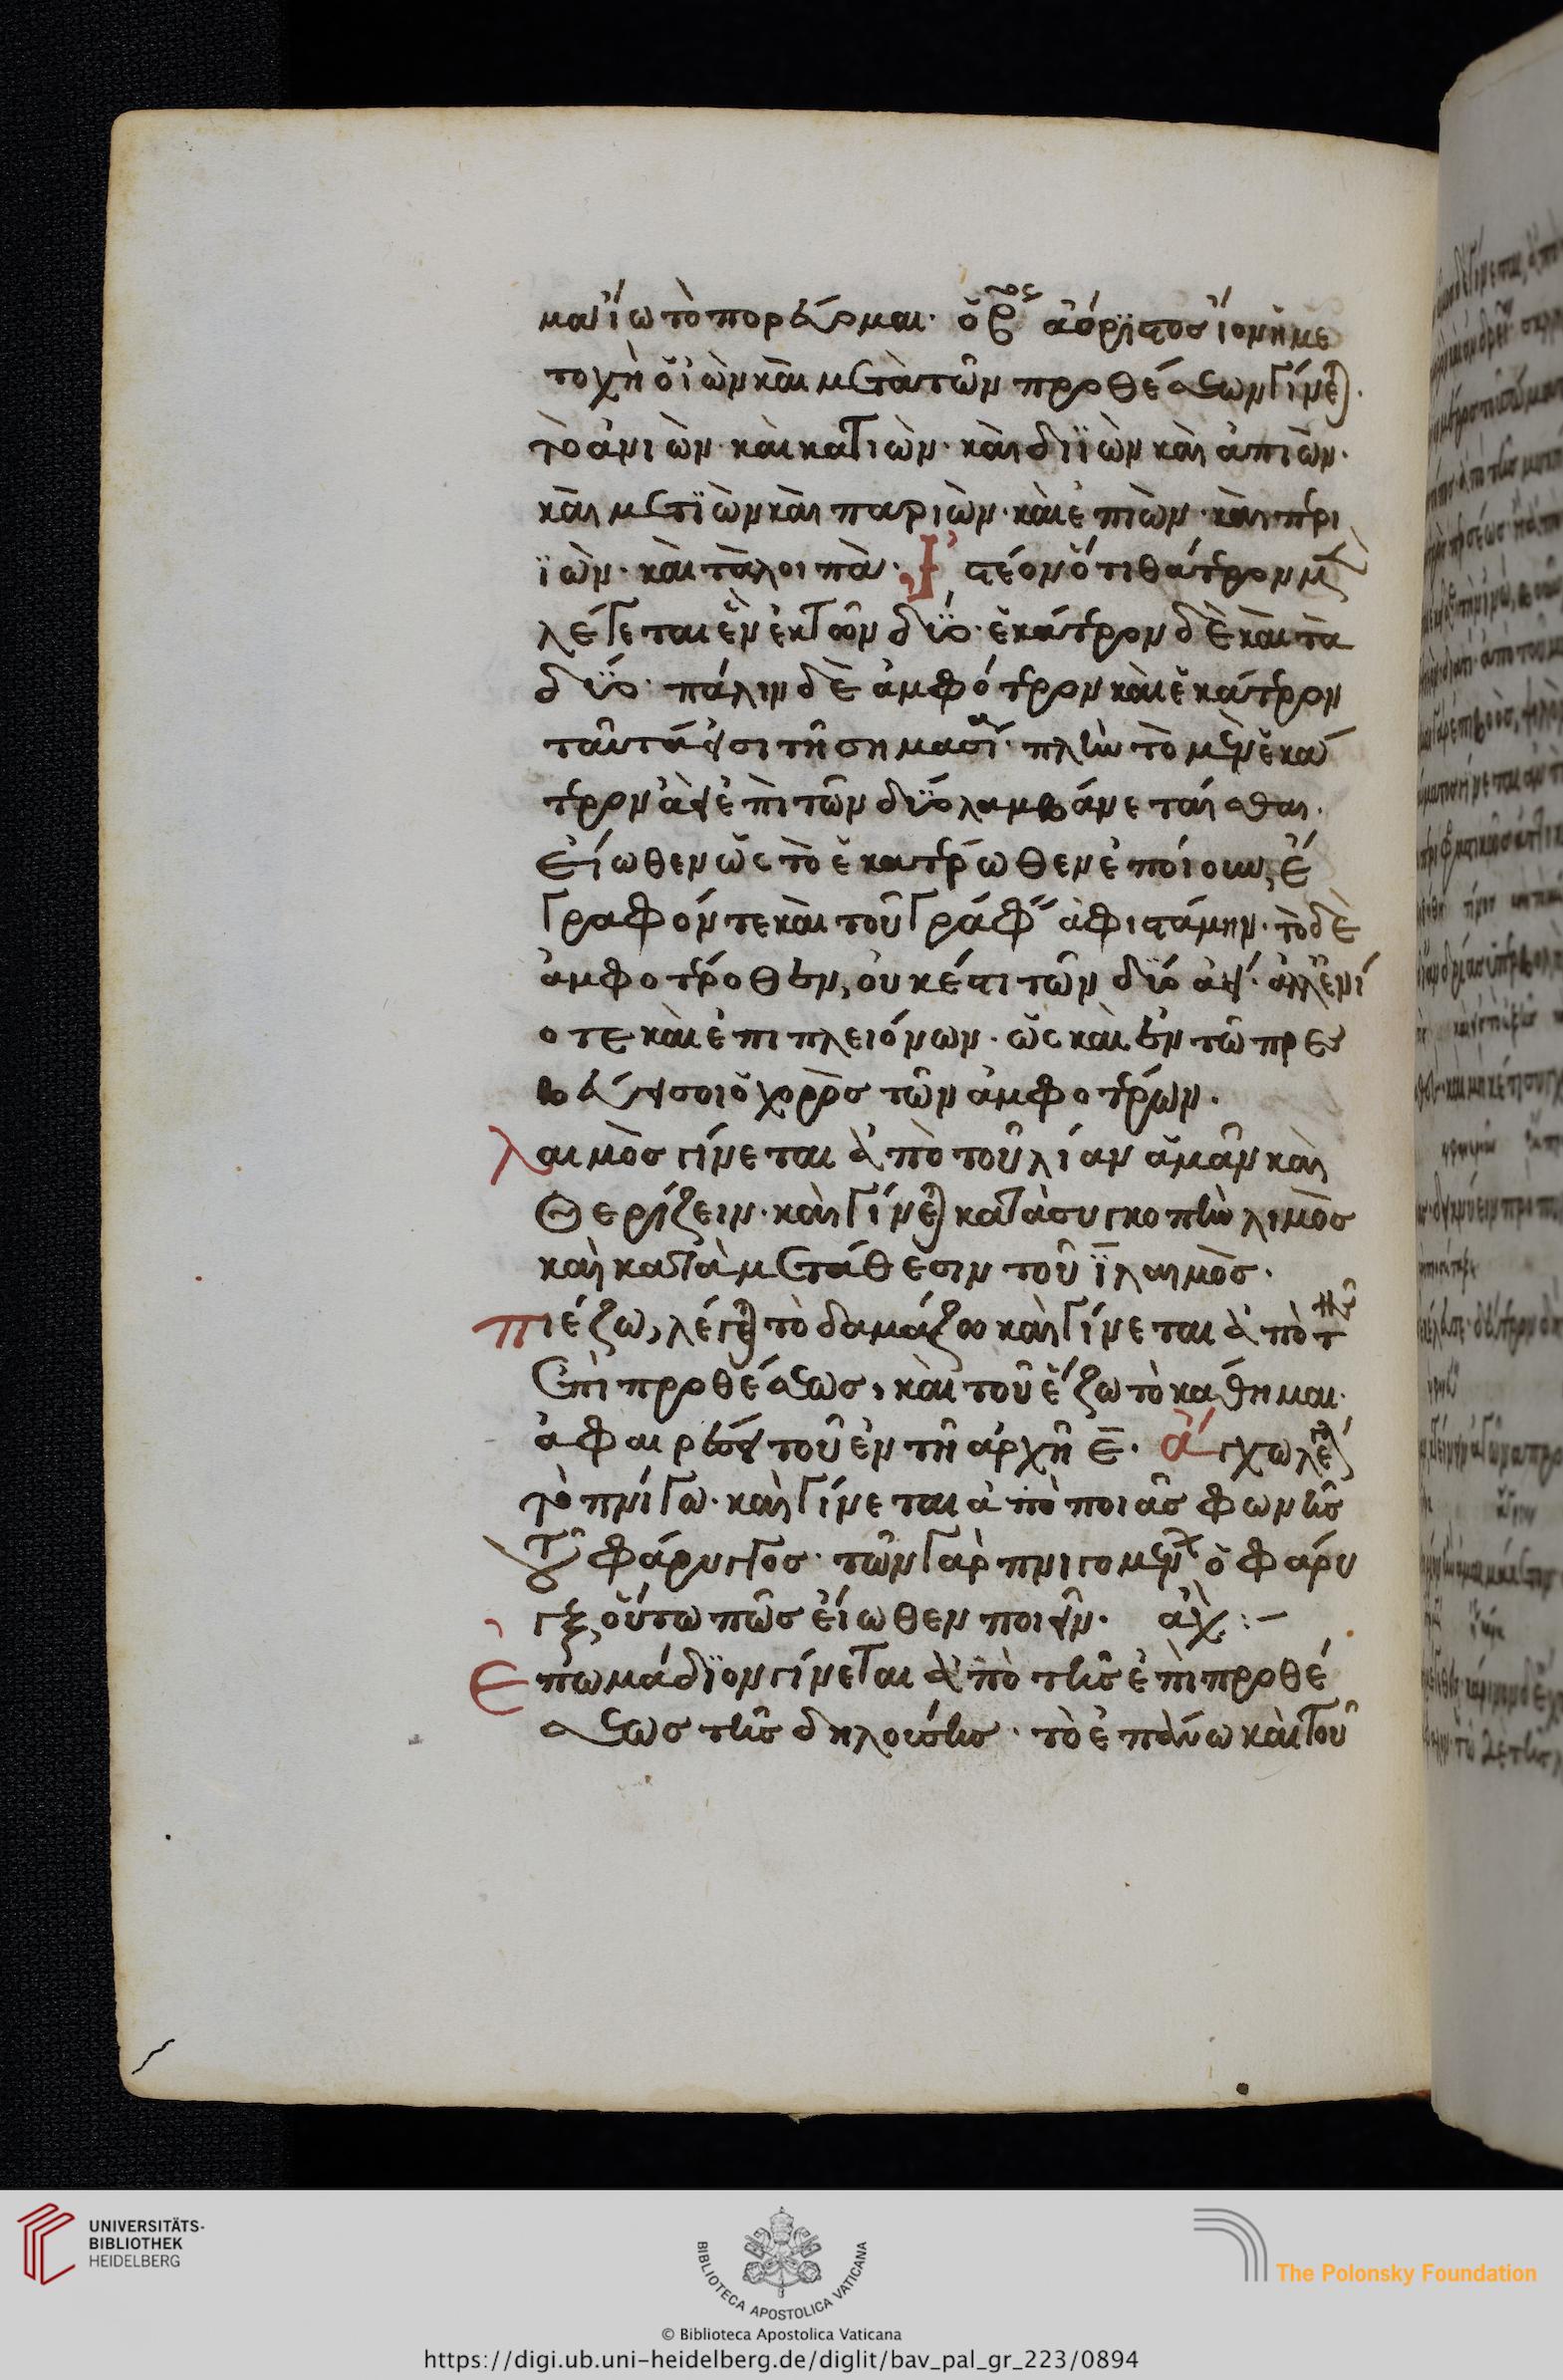 μαι ἴω τὸ πορεύομαι· ὁ β ἀόριστος ἴον ἡ με
τοχὴ ὁ ἰὼν καὶ μετὰ τῶν προθέσεων γίνεται·
τὸ ἀνιὼν· καὶ κατιὼν· καὶ διϊὼν καὶ ἀπιὼν·
καὶ μετιὼν καὶ παριὼν· καὶ ἐπιὼν· καὶ περι
ϊὼν· καὶ τὰ λοιπὰ· Ἰστέον ὅτι θάτερον μὲν
λέγεται ἓν ἐκ τῶν δύο· ἑκάτερον δὲ καὶ τὰ
δύο· πάλιν δὲ ἀμφότερον καὶ ἑκάτερον
ταὐτά εἰσι τῇ σημασίᾳ· πλὴν τὸ μὲν ἑκά
τερον ἀεὶ ἐπὶ τῶν δύο λαμβάνεται
εἴωθεν ὡς τὸ ἑκατέρωθεν ἐποίουν, ἔ
γραφόν τε καὶ τοῦ γράφειν ἀφιστάμην· τὸ δὲ
ἀμφοτέροθεν, οὐκέτι τῶν δύο ἀεί· ἀλλ' ἐνί
οτε καὶ ἐπι πλειόνων· ὡς καὶ ἐν τῷ πρεσ
βεύει σοι ὁ χορὸς τῶν ἀμφοτέρων·
λαιμὸς γίνεται ἀπὸ τοῦ λίαν ἀμᾶν καὶ
θερίζειν· καὶ γίνεται κατὰ συγκοπὴν λιμὸς
καὶ κατὰ μετάθεσιν τοῦ ϊ λαιμὸς·
πιέζω, λέγεται τὸ δαμάζω καὶ γίνεται ἀπὸ τῆς
ἐπὶ προθέσεως, καὶ τοῦ ἕζω τὸ κάθημαι·
ἀφαιρέσει τοῦ ἐν τῇ ἀρχῇ ε· ἄγχω λέγεται
τὸ πνίγω· καὶ γίνεται ἀπὸ ποιᾶς φωνῆς
τοῦ φάρυγγος· τῶν γὰρ πνιγομένων ὁ φάρυ
γξ, οὕτω πῶς εἴωθεν ποιεῖν· ἀχ :-
Ἐπωμάδιον γίνεται ἀπὸ τῆς ἐπὶ προθέ
σεως τῆς δηλούσης· τὸ ἐπάνω καὶ τοῦ
UNIVERSITÄTS-
BIBLIOTHEK
HEIDELBERG
BIBLIOTECA APOSTOLICA VATICANA
The Polonsky Foundation
© Biblioteca Apostolica Vaticana
https://digi.ub.uni-heidelberg.de/diglit/bav_pal_gr_223/0894